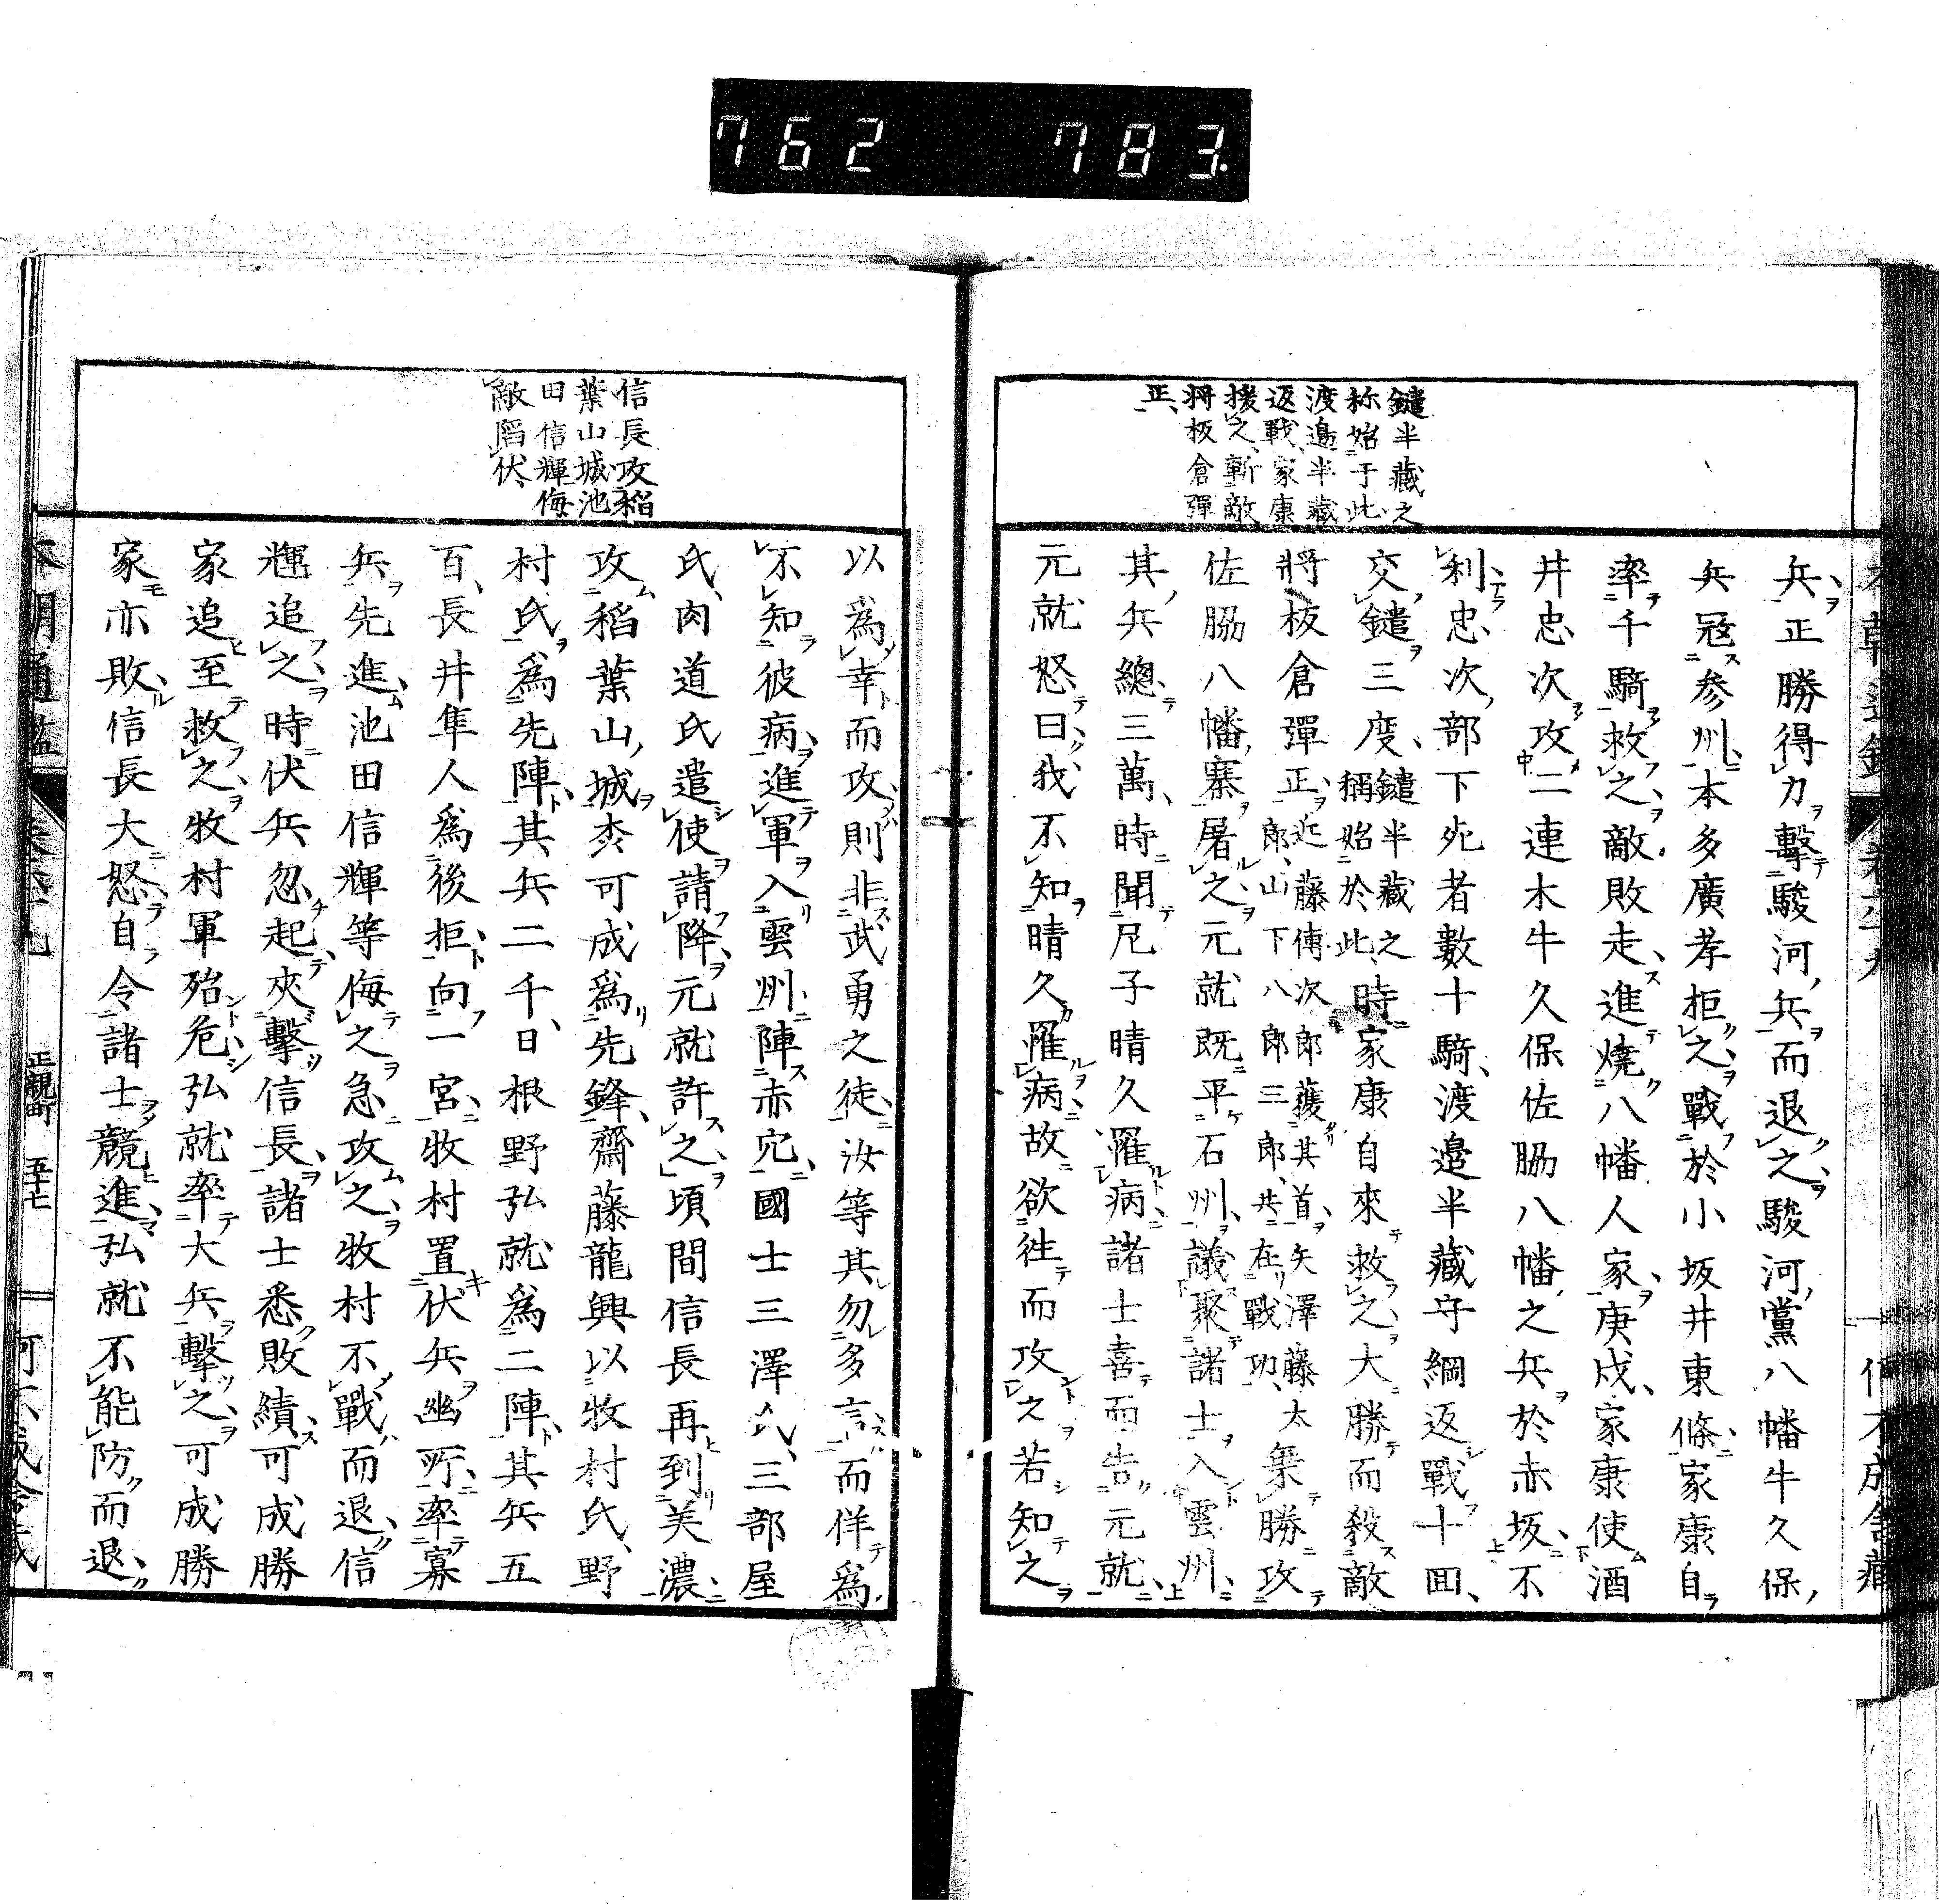 762 783.
鑓半藏之
称始于此
渡邉半藏
返戰家康
援之斬敵
将板倉彈
正
兵正勝得力擊駿河兵而退之駿河黨八幡牛久保
兵冦参州本多廣孝拒之戰於小坂井東條家康自
率千騎救之敵敗走進燒八幡人家庚戍家康使酒
井忠次攻二連木牛久保佐脇八幡之兵於赤坂不
利忠次部下死者數十騎渡邉半藏守綱返戰十回
交鑓三度
鑓半藏之
稱始於此
時家康自來救之大勝而殺敵
将板倉彈正
近藤傳次郎獲其首矢澤藤太
郎山下八郎三郎共在戰功
乗勝攻
佐脇八幡寨屠之元就既平石州議聚諸士入雲州
其兵總三萬時聞尼子晴久罹病諸士喜而告元就
元就怒曰我不知晴久罹病故欲徃而攻之若知之
信長攻稲
葉山城池
田信輝侮
敵陷伏
以爲幸而攻則非武勇之徒汝等其勿多言而佯爲
不知彼病進軍入雲州陣赤穴國士三澤氏三部屋
氏肉道氏遣使請降元就許之頃間信長再到美濃
攻稻葉山城森可成爲先鋒齋藤龍興以牧村氏野
村氏爲先陣其兵二千日根野弘就爲二陣其兵五
百長井隼人爲後拒向一宮牧村置伏兵幽所率寡
兵先進池田信輝等侮之急攻之牧村不戰而退信
輝追之時伏兵忽起夾擊信長諸士悉敗績可成勝
家追至救之牧村軍殆危弘就率大兵擊之可成勝
家亦敗信長大怒自令諸士競進弘就不能防而退
正親町 五十七